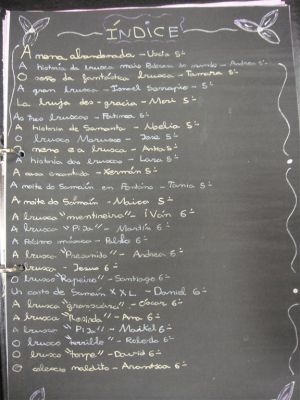 ÍNDICE
A nena abandonada - Uxía 5º
A historia da bruxa mais do mundo - Andrea 5º
O oso da fantástica bruxa - Tamara 5º
A gran bruxa - Ismael 5º
La bruja des-gracia - Meri 5º
As tres bruxas - Fátima
A historia de Samanta - Noelia 5º
O bruxo Maruxo - José 5º
O neno e a bruxa - Antía 5º
A historia das bruxas - Lara 5º
A casa encantada - Xermán 5º
A noite do Samaín en - Tania 5º
A noite do Samaín - Maica 5º
A bruxa "mentireira" - Iván 6º
A bruxa "Pixa" - Martín 6º
A máxica - Pablo 6º
A bruxa "Presumida" - Andrea 6º
A bruxa - Jesus 6º
O bruxo "Rapeiro" - Santiago 6º
Un conto de Samaín X X L - Daniel 6º
A bruxa - Óscar 6º
A bruxa "Rosiña" - Ana 6º
A bruxa "Pixa" - Maikel 6º
O bruxo "terrible" - Roberto 6º
O bruxo "torpe" - David 6º
O maldito - Arantxa 6º